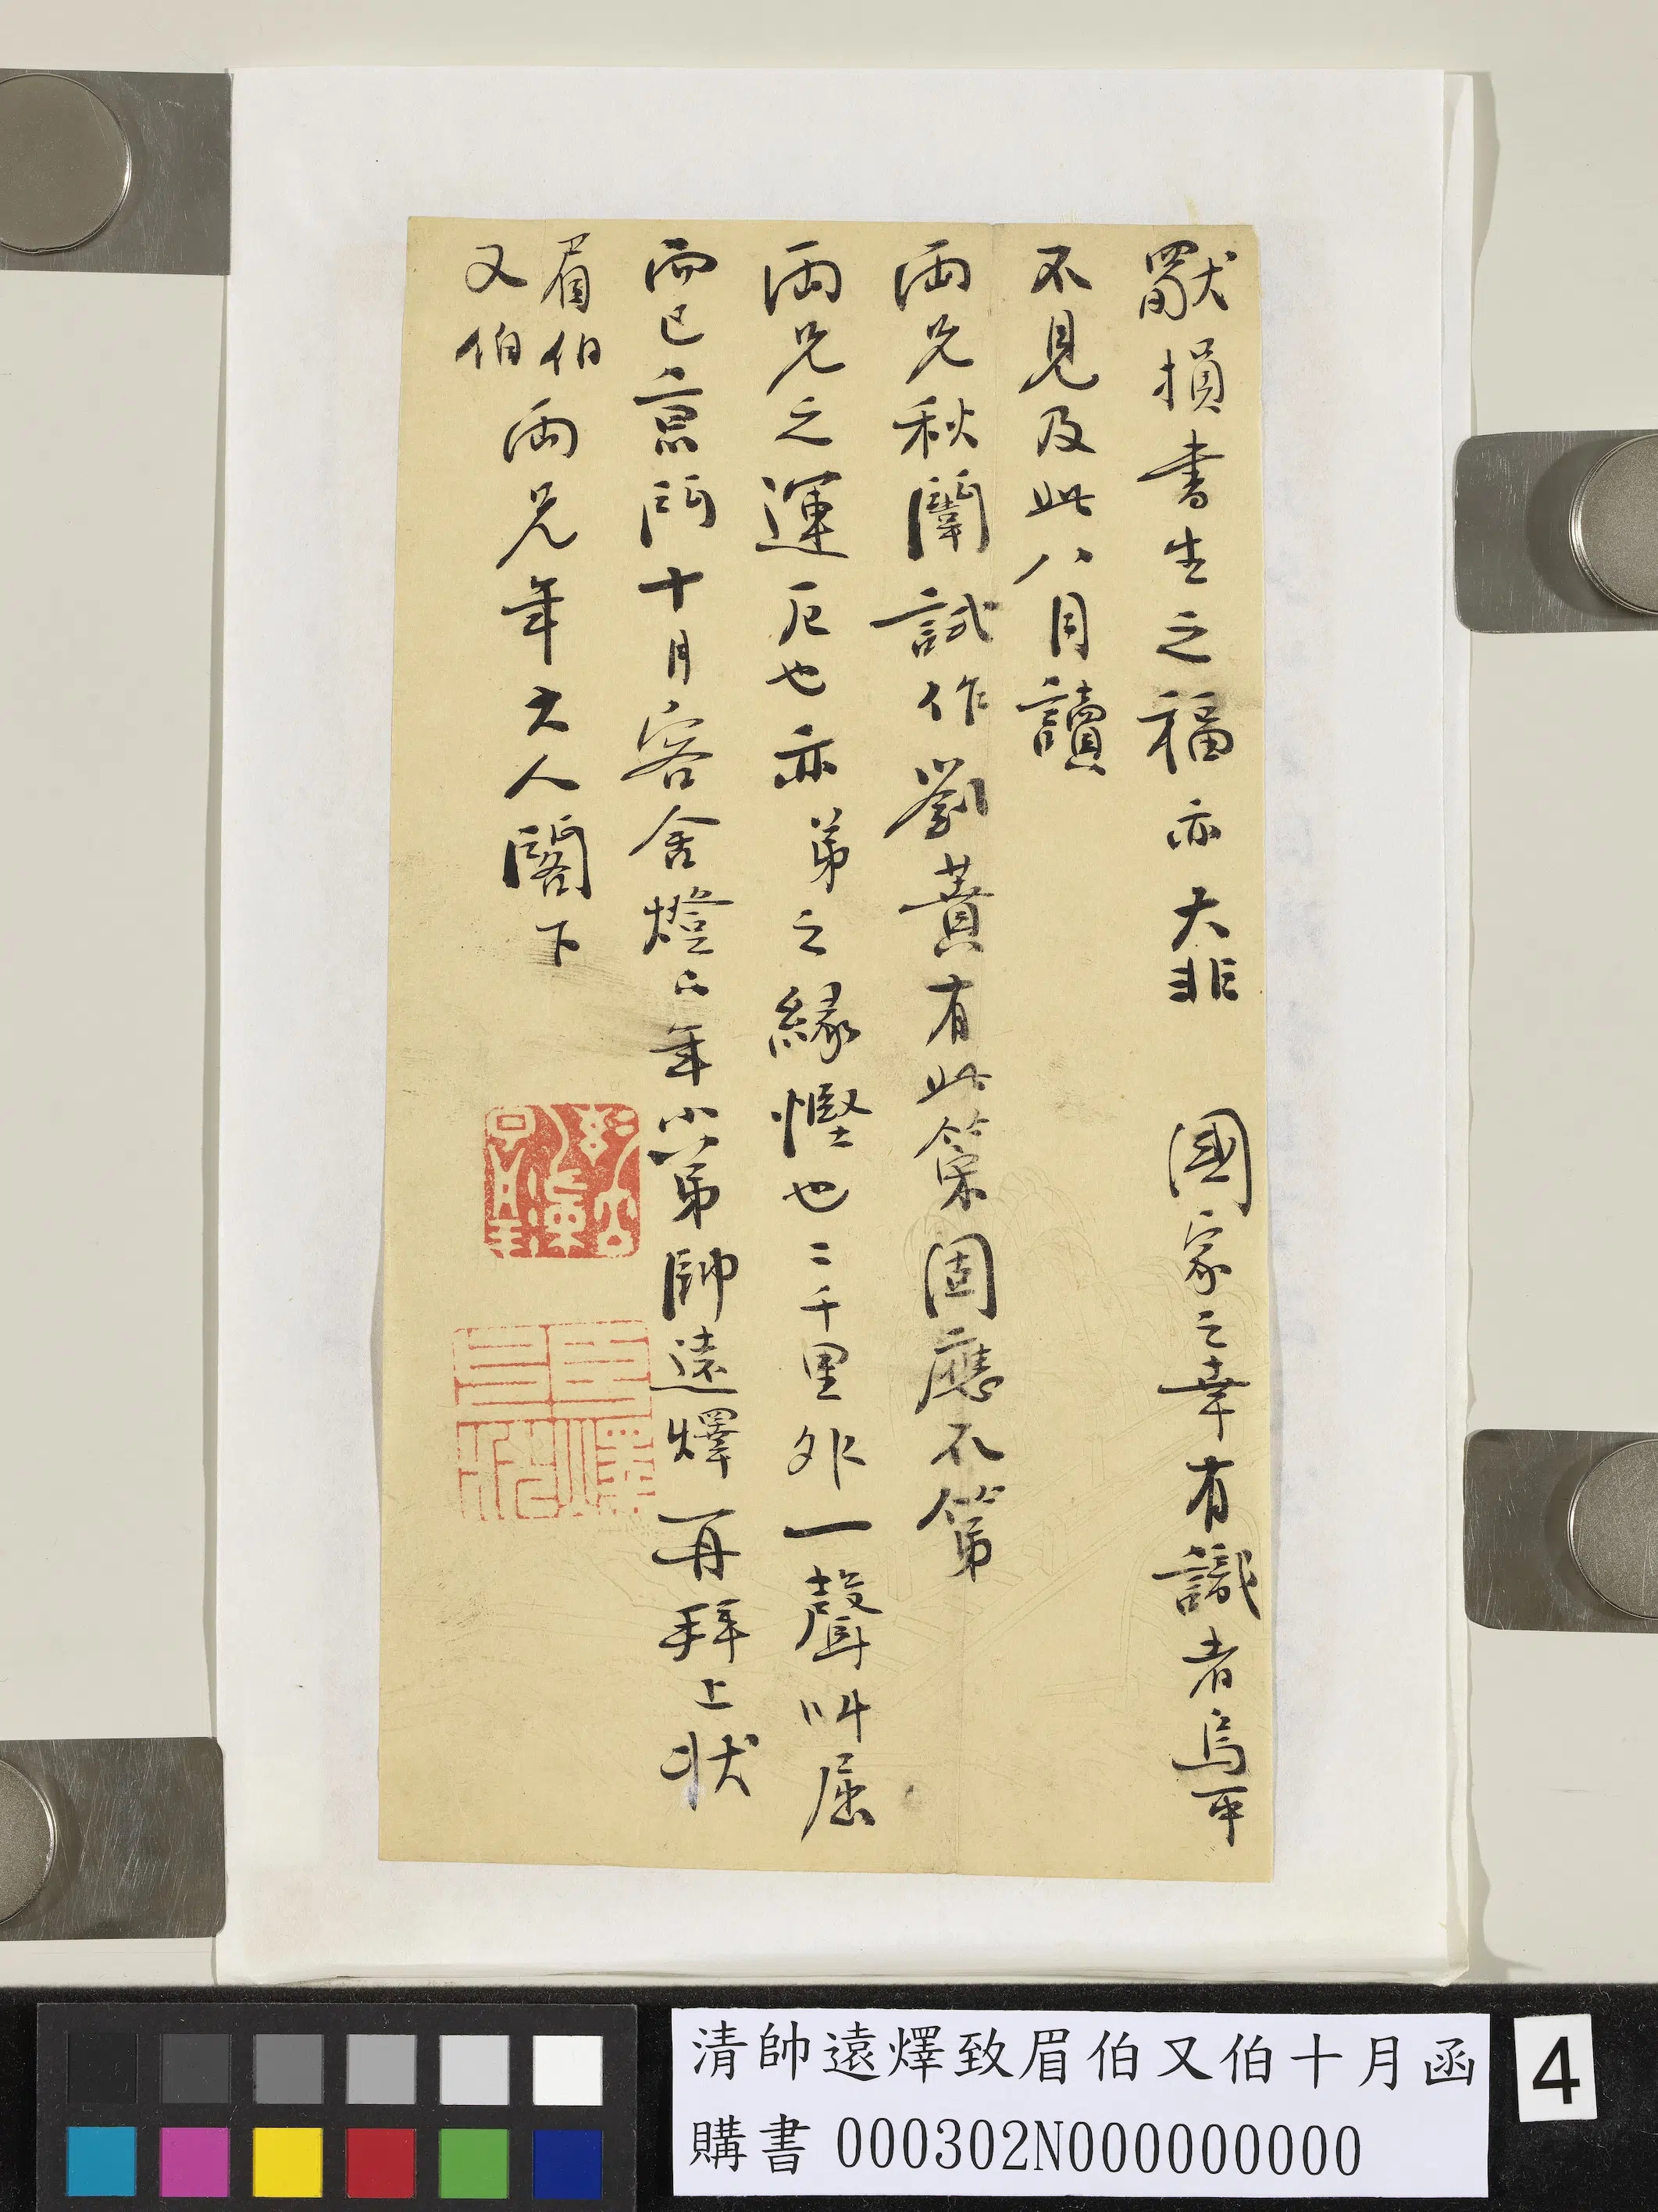 損書生之福亦大非 國家之幸有識者烏可
不見及此八月讀
兩兄秋闈試作劉蕡有此策固應不第
兩兄之運厄也亦弟之緣慳也二千里外一聲叫屈
而已京門十月客舍燈下年小弟帥遠燡再拜上狀
眉伯
又伯
兩兄年大人閣下
清帥遠燡致眉伯又伯十月函
購書 000302N000000000
4